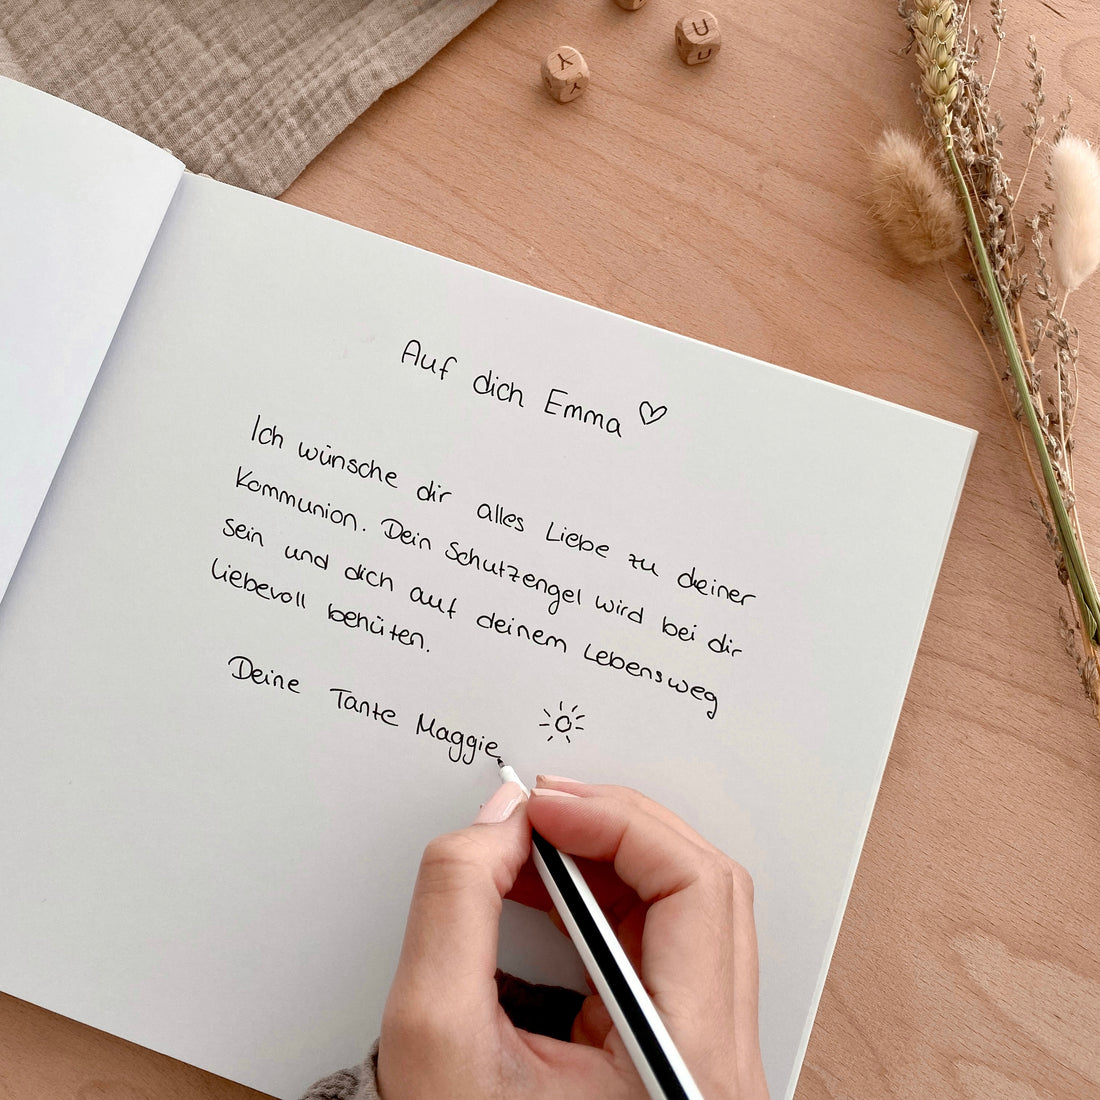 Auf dich Emma ♡
Ich wünsche dir alles Liebe zu deiner
Kommunion. Dein Schutzengel wird bei dir
sein und dich auf deinem Lebensweg
liebevoll behüten.
Deine Tante Maggie